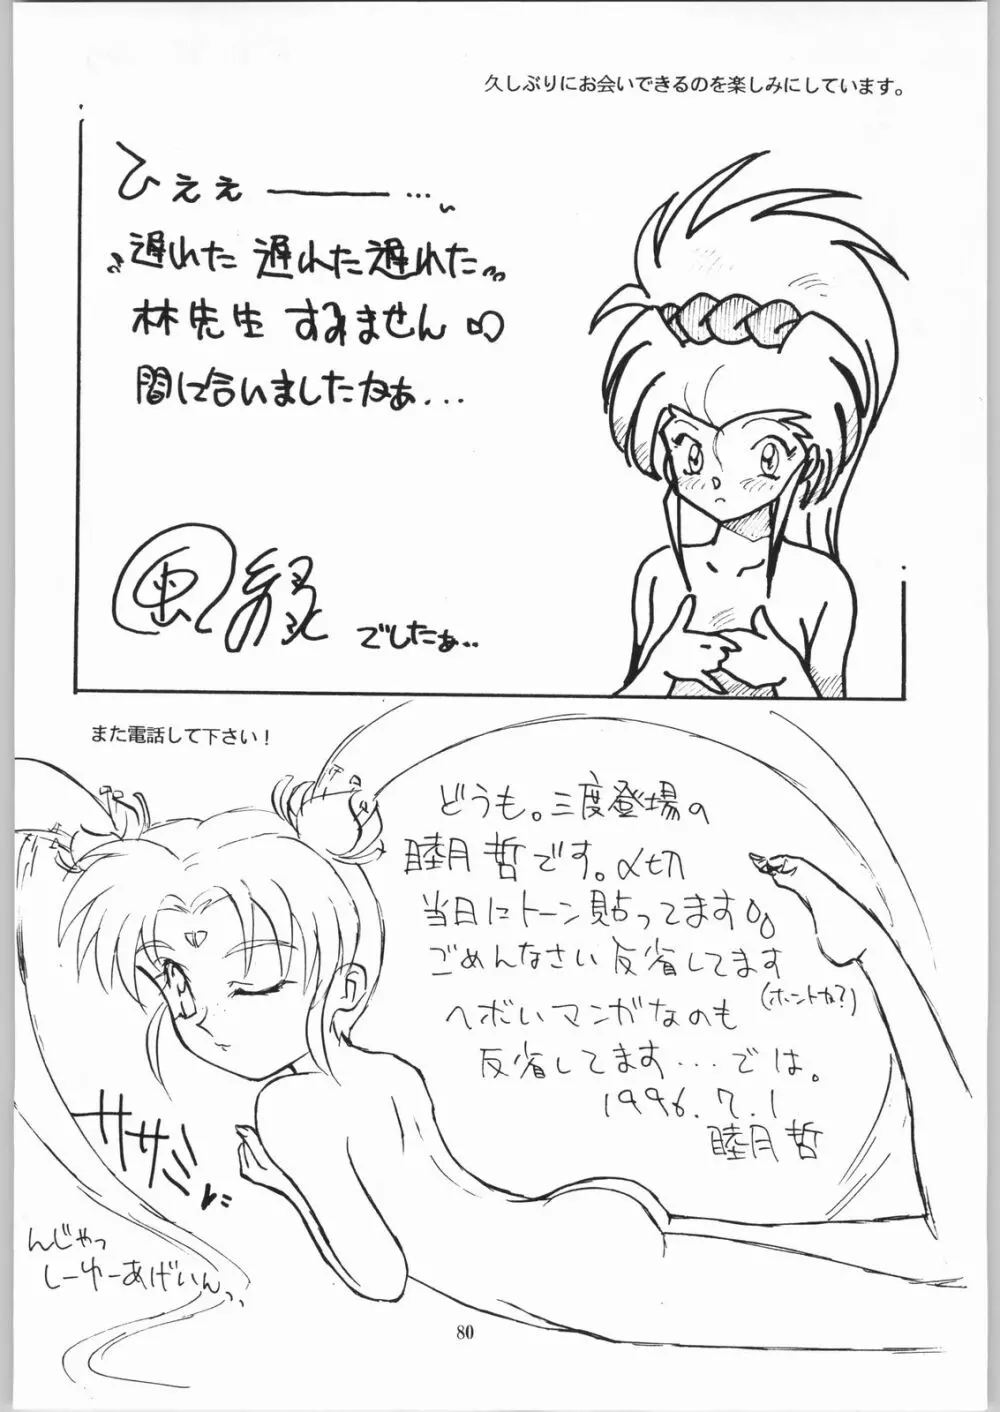 久しぶりにお会いできるのを楽しみにしています。
ひぇぇ――…
遅れた 遅れた 遅れた
林先生 すみません
間に合いましたかぁ...
でしたぁ..
また電話して下さい!
どうも。三度登場の
睦月 哲です。〆切
当日にトーン貼ってます
ごめんなさい 反省してます
(ホントか?)
ヘボいマンガなのも
反省してます...では。
1996.7.1
睦月 哲
ササミ
んじゃっ
しーゆーあげいん
80